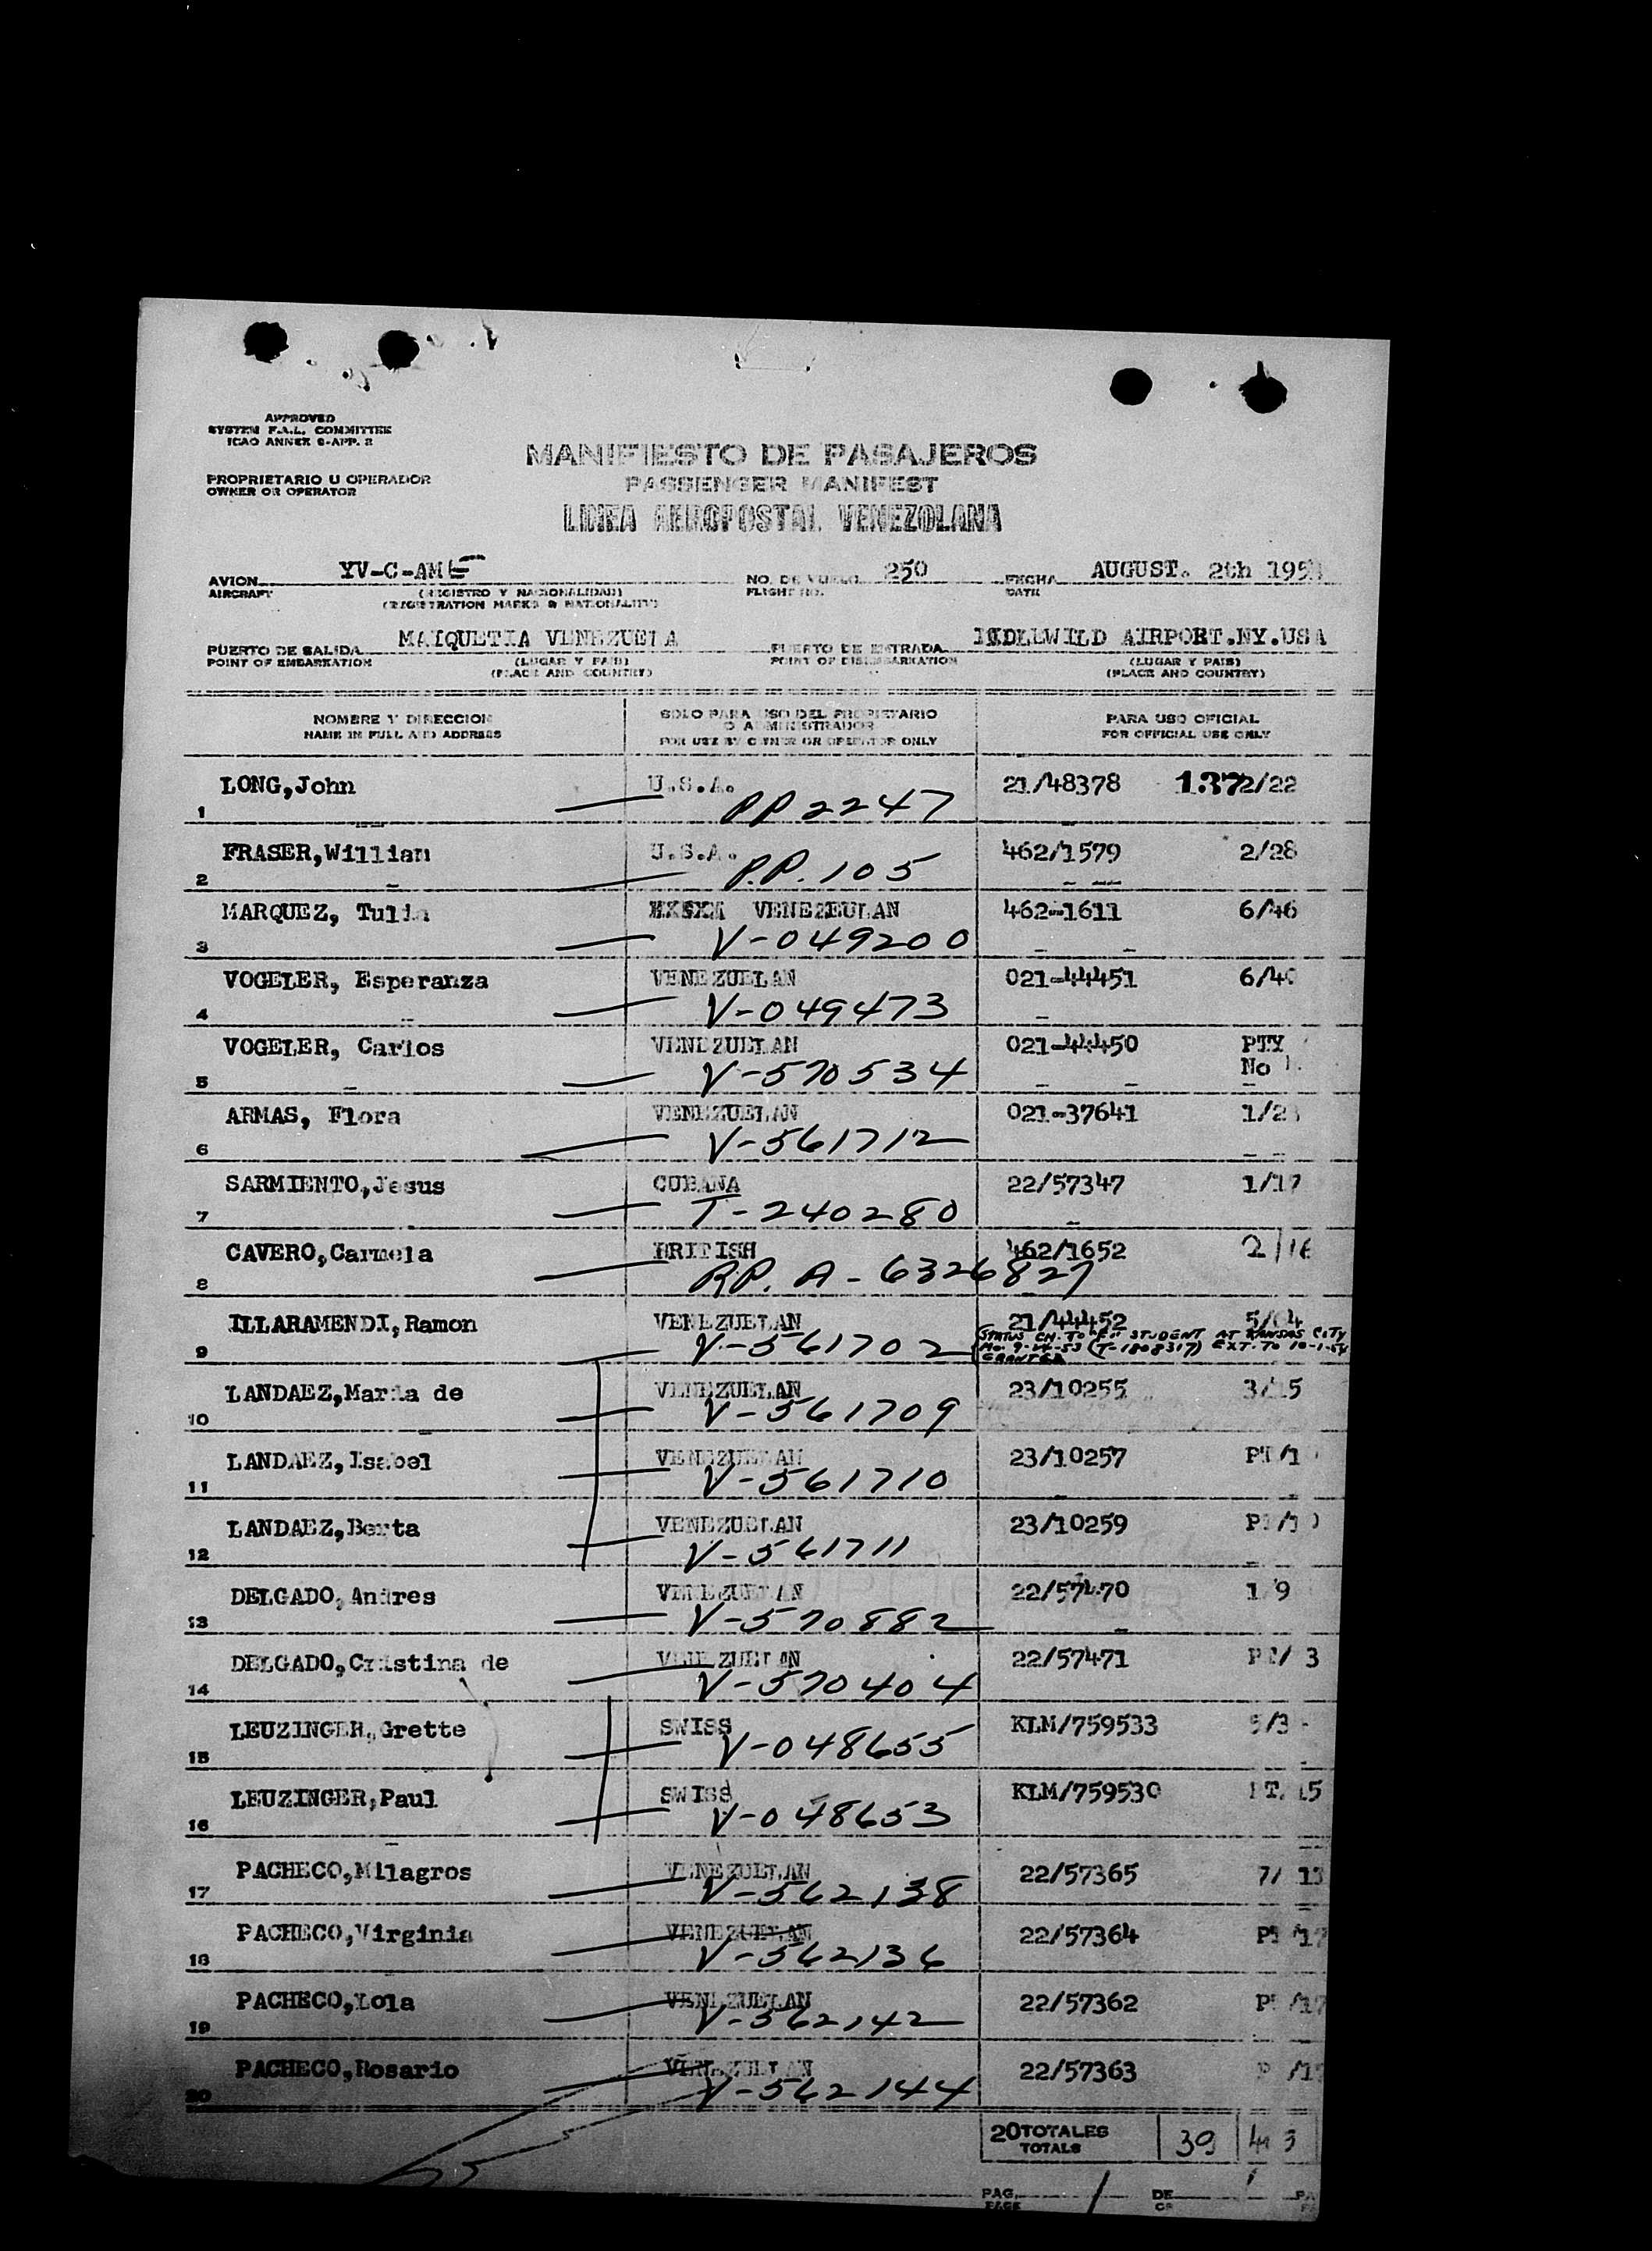 APPROVED
SYSTEM F.A.L. COMMITTEE
ICAO ANNEX 9-APP. 2
MANIFIESTO DE PASAJEROS
PROPRIETARIO U OPERADOR
OWNER OR OPERATOR
PASSENGER MANIFEST
LINEA AEROPOSTAL VENEZOLANA
AVION YV-C-AME NO. DE VUELO 250 FECHA AUGUST. 2th
AIRCRAFT (REGISTRO Y NACIONALIDAD) FLIGHT NO. DATE
(REGISTRATION MARKS & NATIONALITY)
PUERTO DE SALIDA MAIQUETIA VENEZUELA PUERTO DE ENTRADA IXDLLWILD AIRPORT.NY.USA
POINT OF EMBARKATION (LUGAR Y PAIS) POINT OF DISEMBARKATION (LUGAR Y PAIS)
(PLACE AND COUNTRY) (PLACE AND COUNTRY)
NOMBRE Y DIRECCION SOLO PARA USO DEL PROPIETARIO PARA USO OFICIAL
O ADMINISTRADOR
NAME IN FULL AND ADDRESS FOR USE BY OWNER OR OPERATOR ONLY FOR OFFICIAL USE ONLY
LONG,John U.S.A. 21/48378 1372/22
1 PP 2247
FRASER,William U.S.A. 462/1579 2/28
2 P.P. 105
MARQUEZ, Tulia VENEZEULAN 462-1611 6/46
3 V-049200
VOGELER, Esperanza VENEZUELAN 021-44451
4 V-049473
VOGELER, Carlos VENEZUELAN 021-44450 PTY
No
5 V-570534
ARMAS, Flora VENEZUELAN 021-37641
6 V-561712
SARMIENTO,Jesus CUBANA 22/57347 1/17
7 T-240280
CAVERO,Carmela BRITISH 462/1652 2/16
8 P.P. A-6326827
ILLARAMENDI,Ramon VENEZUELAN 21/44452
9 V-561702 STATUS CH. TO "F" STUDENT AT KANSAS CITY
Mo. 9-14-53 (T-1808317) EXT. TO 10-1-54
GRANTED
LANDAEZ,Maria de VENEZUELAN 23/10255 3/15
10 V-561709
LANDAEZ,Isabel VENEZUELAN 23/10257
11 V-561710
LANDAEZ,Berta VENEZUELAN 23/10259
12 V-561711
DELGADO,Andres VENEZUELAN 22/57470 1/9
13 V-570882
DELGADO,Cristina de VENEZUELAN 22/57471
14 V-570404
LEUZINGER,Grette SWISS KLM/759533
15 V-048655
LEUZINGER,Paul SWISS KLM/759530
16 V-048653
PACHECO,Milagros VENEZUELAN 22/57365
17 V-562138
PACHECO,Virginia VENEZUELAN 22/57364
18 V-562136
PACHECO,Lola VENEZUELAN 22/57362
19 V-562142
PACHECO,Rosario VENEZUELAN 22/57363
20 V-562144
20 TOTALES 39
TOTALS
PAG. 1 DE
PAGE